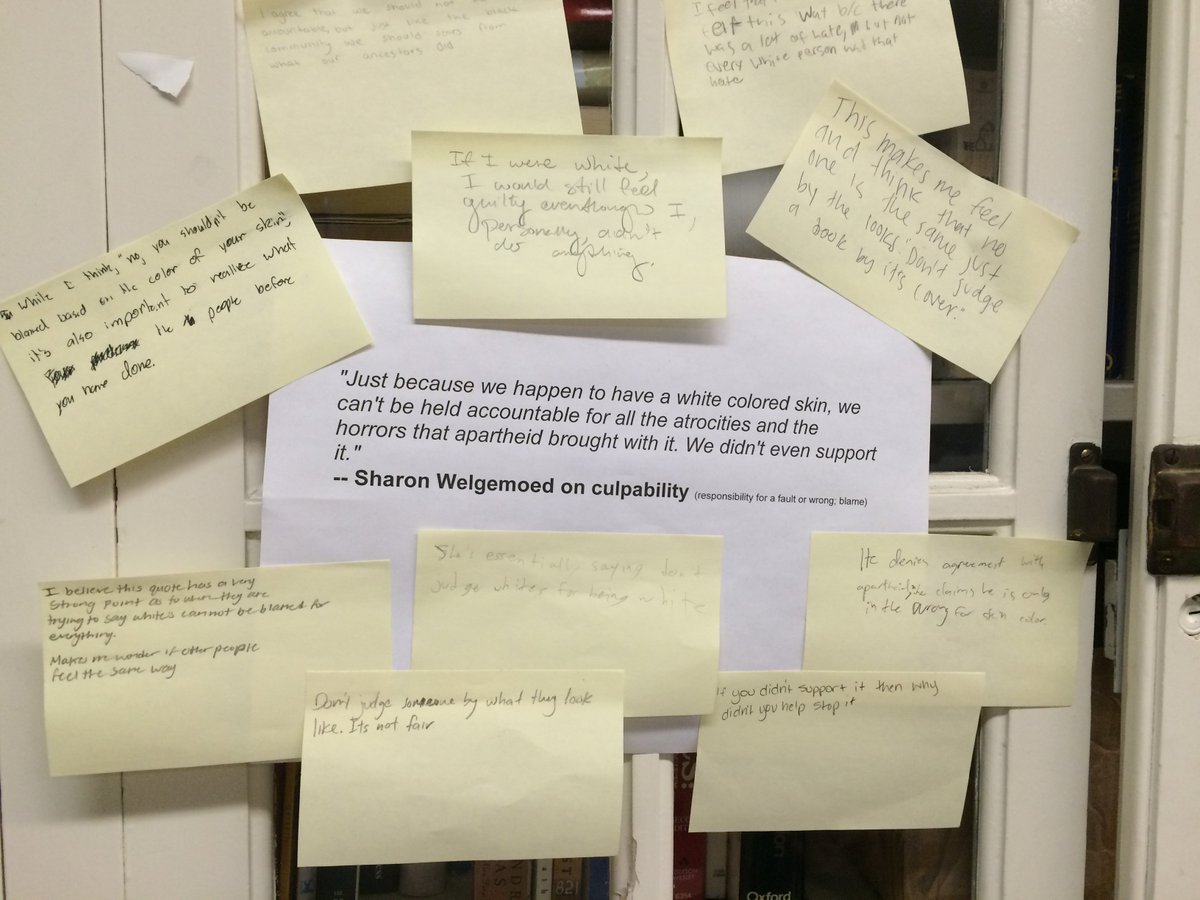 I agree that we should not be
accountable, but just like the black
community we should scars from
what our ancestors did
I feel
felt this wat b/c there
was a lot of hate, but not
every white person was that
hate
If I were white,
I would still feel
guilty eventhough I,
personally, didn't
do anything.
This makes me feel
and think that no
one is the same just
by the looks. "Don't judge
a book by it's cover."
While I think, "no, you shouldn't be
blamed based on the color of your skin,"
it's also important to realize what
the people before
you have done.
"Just because we happen to have a white colored skin, we
can't be held accountable for all the atrocities and the
horrors that apartheid brought with it. We didn't even support
it."
-- Sharon Welgemoed on culpability (responsibility for a fault or wrong; blame)
I believe this quote has a very
strong point as to when they are
trying to say white's cannot be blamed for
everything.
Makes me wonder if other people
feel the same way
She's essentially saying don't
judge whites for being white
He denies agreement with
apartheid, claims he is only
in the wrong for skin color
Don't judge someone by what they look
like. Its not fair
If you didn't support it then why
didn't you help stop it
821
Oxford